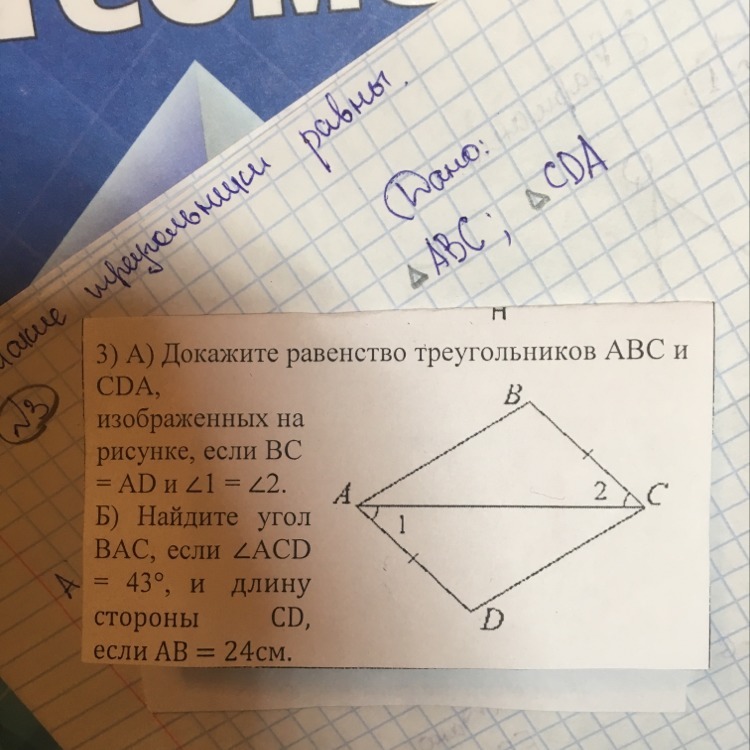 равны.
треугольники
Дано:
△ABC; △CDA
№3
A
H
3) А) Докажите равенство треугольников ABC и
CDA,
изображенных на
рисунке, если BC
= AD и ∠1 = ∠2.
Б) Найдите угол
BAC, если ∠ACD
= 43°, и длину
стороны CD,
если AB = 24см.
B
A
2
C
1
D